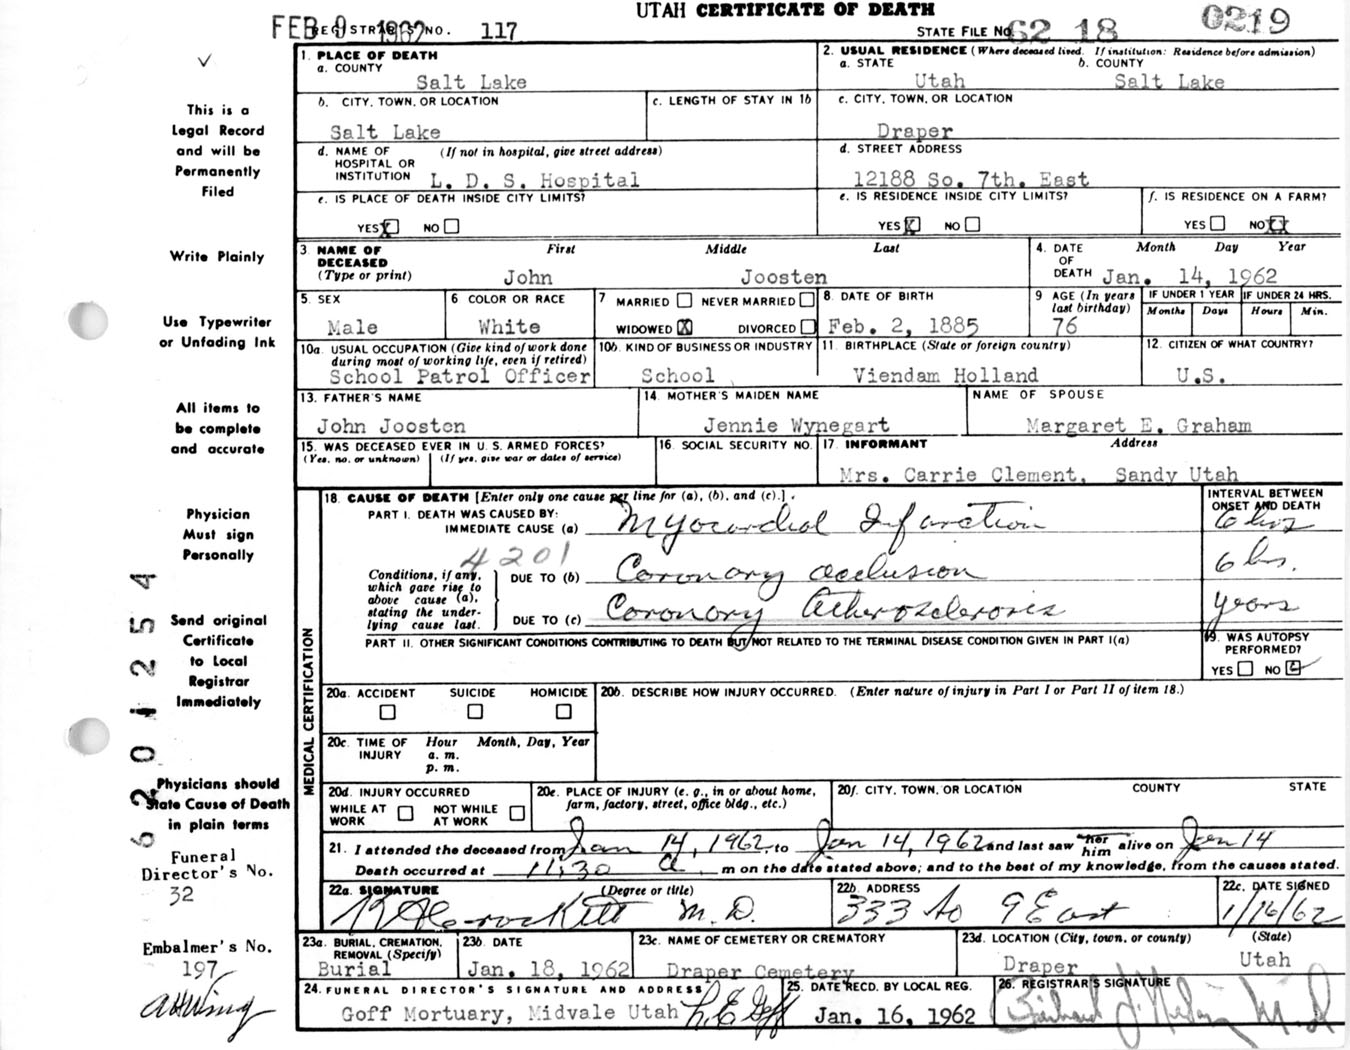 UTAH CERTIFICATE OF DEATH
FEB 9 1962 REGISTRAR'S NO. 117 STATE FILE NO. 62 18 0219
This is a
Legal Record
and will be
Permanently
Filed
Write Plainly
Use Typewriter
or Unfading Ink
All items to
be complete
and accurate
Physician
Must sign
Personally
Send original
Certificate
to Local
Registrar
Immediately
Physicians should
State Cause of Death
in plain terms
Funeral
Director's No.
32
Embalmer's No.
197
1. PLACE OF DEATH
a. COUNTY
Salt Lake
2. USUAL RESIDENCE (Where deceased lived. If institution: Residence before admission)
a. STATE b. COUNTY
Utah Salt Lake
b. CITY, TOWN, OR LOCATION
Salt Lake
c. LENGTH OF STAY IN 1b
c. CITY, TOWN, OR LOCATION
Draper
d. NAME OF (If not in hospital, give street address)
HOSPITAL OR
INSTITUTION L. D. S. Hospital
d. STREET ADDRESS
12188 So. 7th. East
e. IS PLACE OF DEATH INSIDE CITY LIMITS?
YES X NO
e. IS RESIDENCE INSIDE CITY LIMITS?
YES X NO
f. IS RESIDENCE ON A FARM?
YES NO X
3. NAME OF First Middle Last
DECEASED
(Type or print) John Joosten
4. DATE Month Day Year
OF
DEATH Jan. 14, 1962
5. SEX
Male
6 COLOR OR RACE
White
7 MARRIED NEVER MARRIED
WIDOWED X DIVORCED
8. DATE OF BIRTH
Feb. 2, 1885
9 AGE (In years
last birthday)
76
IF UNDER 1 YEAR IF UNDER 24 HRS.
Months Days Hours Min.
10a. USUAL OCCUPATION (Give kind of work done
during most of working life, even if retired)
School Patrol Officer
10b. KIND OF BUSINESS OR INDUSTRY
School
11. BIRTHPLACE (State or foreign country)
Viendam Holland
12. CITIZEN OF WHAT COUNTRY?
U.S.
13. FATHER'S NAME
John Joosten
14. MOTHER'S MAIDEN NAME
Jennie Wynegart
NAME OF SPOUSE
Margaret E. Graham
15. WAS DECEASED EVER IN U.S. ARMED FORCES?
(Yes, no, or unknown) (If yes, give war or dates of service)
16. SOCIAL SECURITY NO.
17. INFORMANT Address
Mrs. Carrie Clement, Sandy Utah
MEDICAL CERTIFICATION
18. CAUSE OF DEATH [Enter only one cause per line for (a), (b), and (c).]
PART I. DEATH WAS CAUSED BY:
IMMEDIATE CAUSE (a) Myocardial Infarction
4201
Conditions, if any,
which gave rise to
above cause (a),
stating the under-
lying cause last.
DUE TO (b) Coronary occlusion
DUE TO (c) Coronary Atherosclerosis
INTERVAL BETWEEN
ONSET AND DEATH
6 hrs
6 hrs.
years
PART II. OTHER SIGNIFICANT CONDITIONS CONTRIBUTING TO DEATH BUT NOT RELATED TO THE TERMINAL DISEASE CONDITION GIVEN IN PART I(a)
19. WAS AUTOPSY
PERFORMED?
YES NO
20a. ACCIDENT SUICIDE HOMICIDE
20b. DESCRIBE HOW INJURY OCCURRED. (Enter nature of injury in Part I or Part II of item 18.)
20c. TIME OF Hour Month, Day, Year
INJURY a. m.
p. m.
20d. INJURY OCCURRED
WHILE AT NOT WHILE
WORK AT WORK
20e. PLACE OF INJURY (e. g., in or about home,
farm, factory, street, office bldg., etc.)
20f. CITY, TOWN, OR LOCATION COUNTY STATE
21. I attended the deceased from Jan 14, 1962, to Jan 14, 1962 and last saw her him alive on Jan 14
Death occurred at 11:30 a. m on the date stated above; and to the best of my knowledge, from the causes stated.
22a. SIGNATURE (Degree or title)
M.D.
22b. ADDRESS
333 So 9 East
22c. DATE SIGNED
1/16/62
23a. BURIAL, CREMATION,
REMOVAL (Specify)
Burial
23b. DATE
Jan. 18, 1962
23c. NAME OF CEMETERY OR CREMATORY
Draper Cemetery
23d. LOCATION (City, town, or county) (State)
Draper Utah
24. FUNERAL DIRECTOR'S SIGNATURE AND ADDRESS
Goff Mortuary, Midvale Utah
25. DATE RECD. BY LOCAL REG.
Jan. 16, 1962
26. REGISTRAR'S SIGNATURE